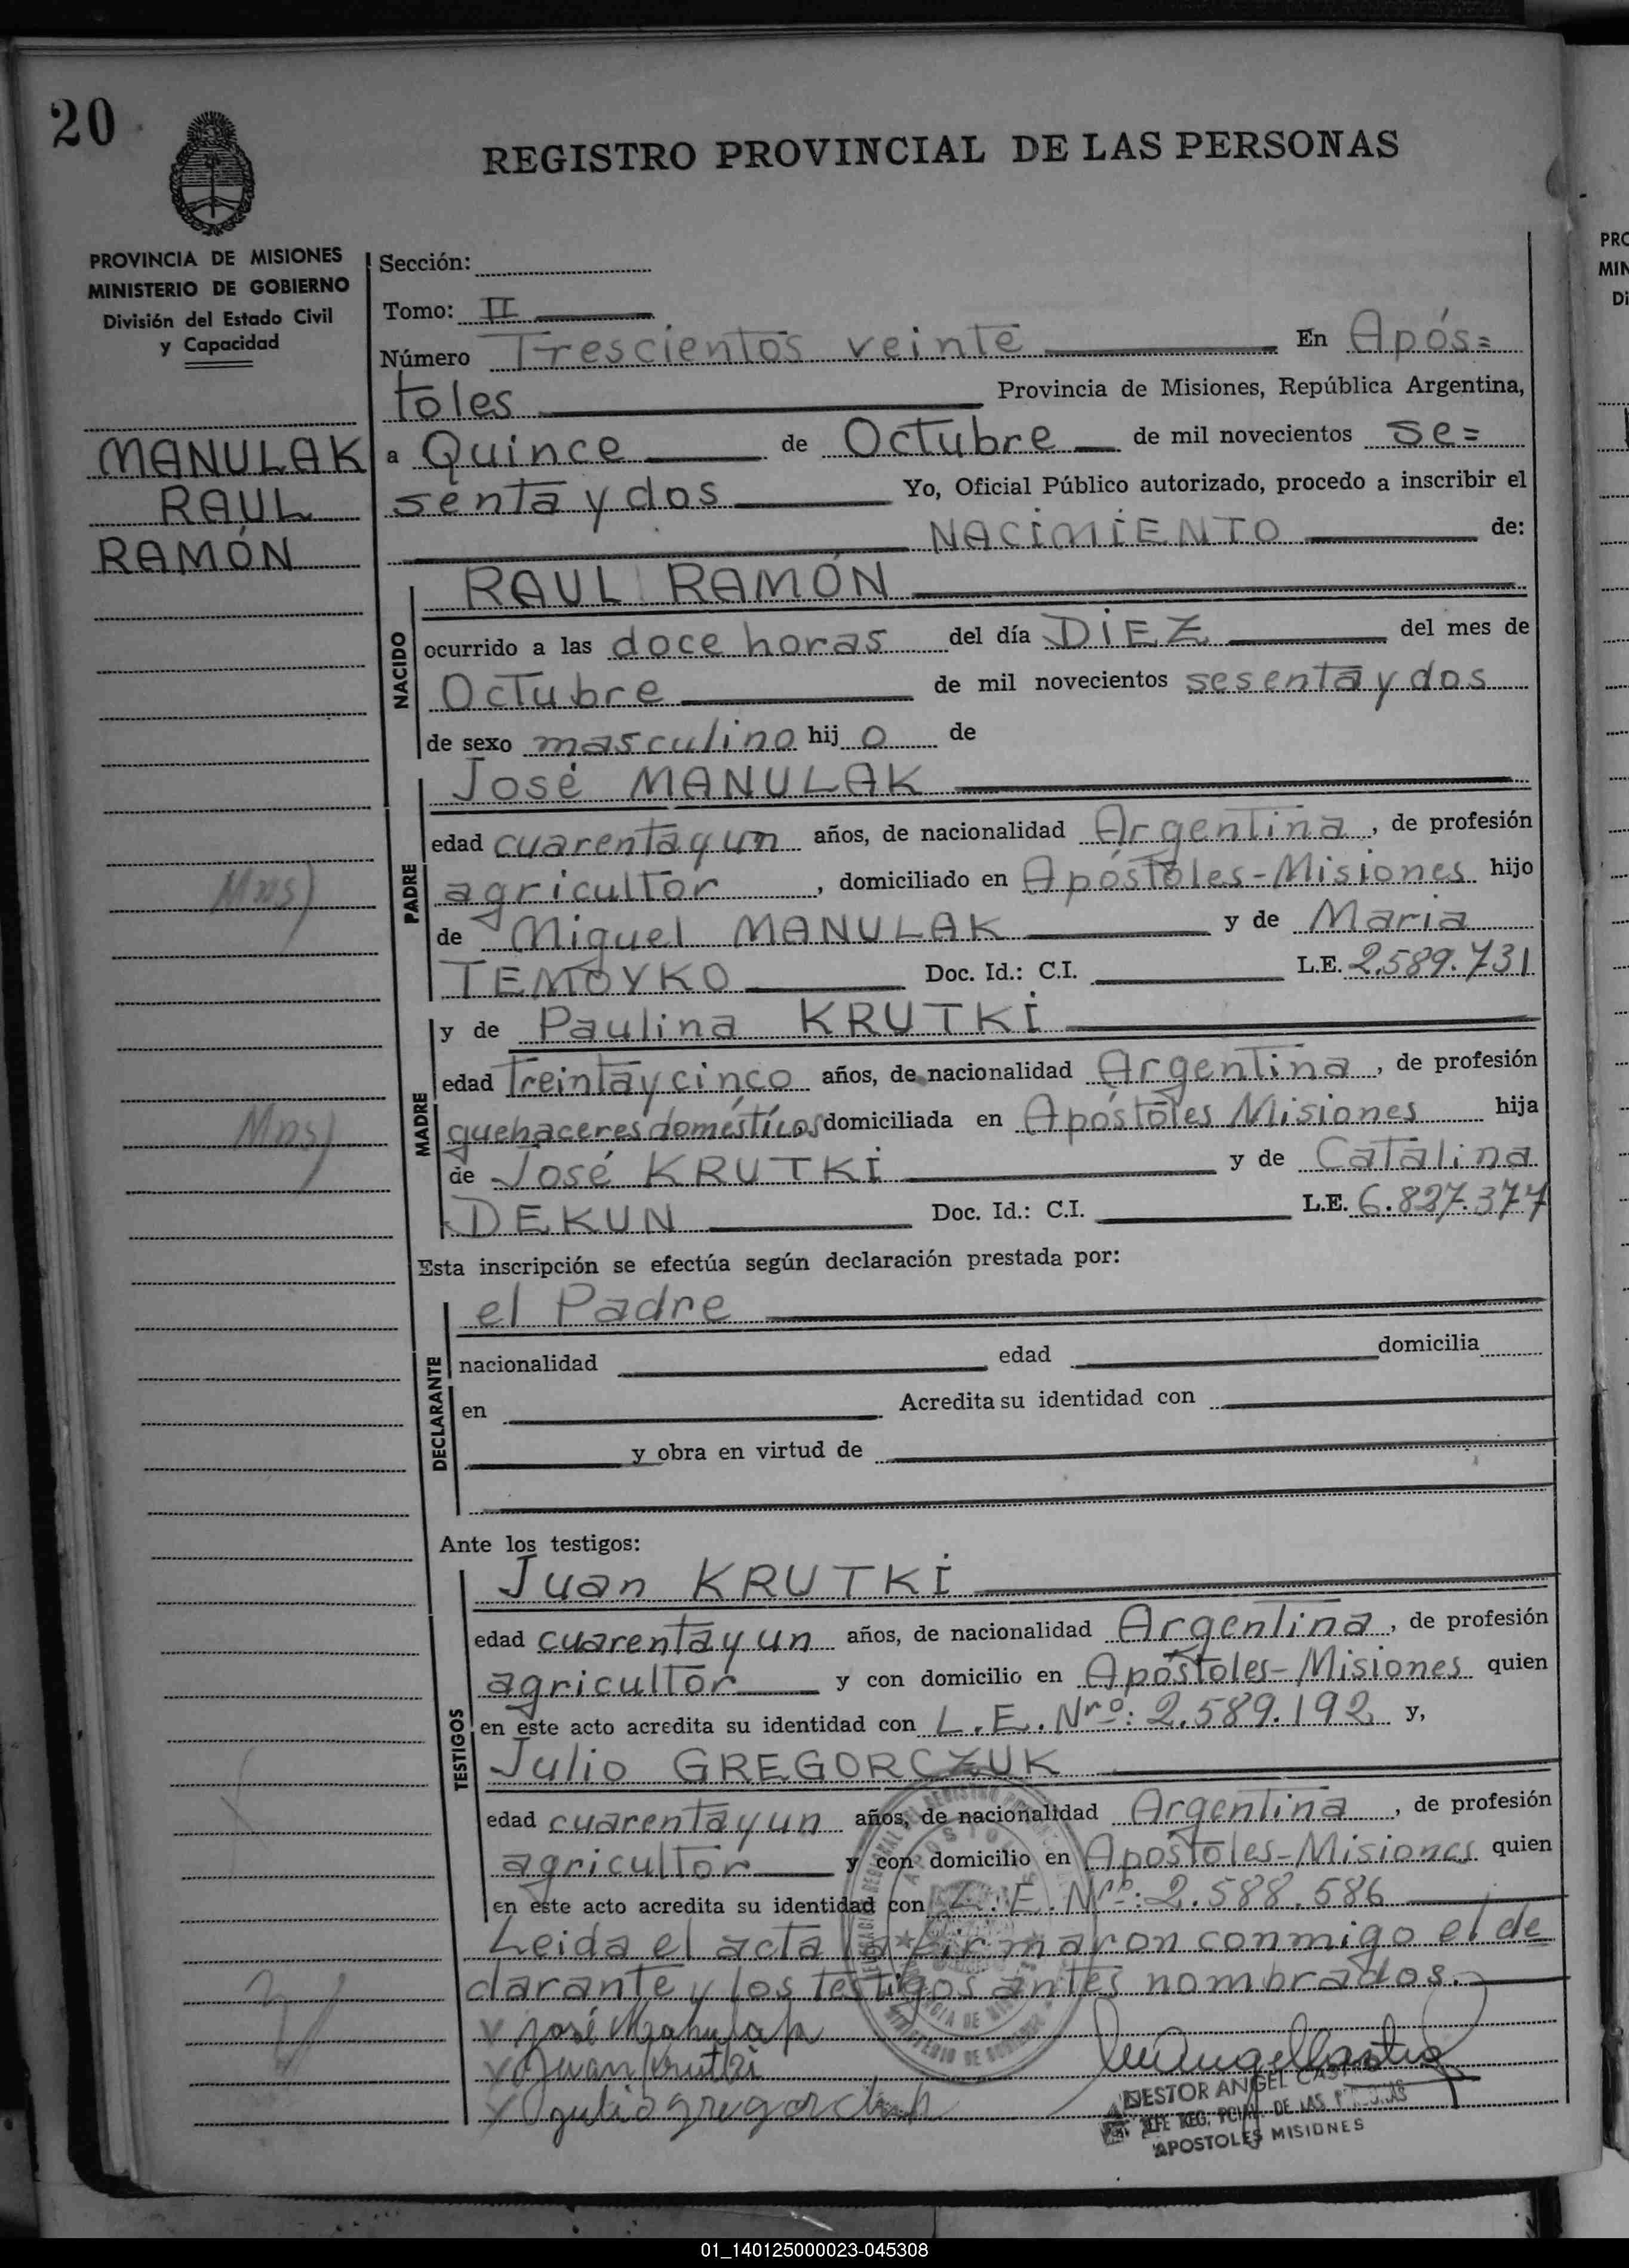 20
REGISTRO PROVINCIAL DE LAS PERSONAS
PROVINCIA DE MISIONES
MINISTERIO DE GOBIERNO
División del Estado Civil
y Capacidad
MANULAK
RAUL
RAMÓN
Mns)
Mns)
Sección:
Tomo: II
Número Trescientos veinte En Após=
toles Provincia de Misiones, República Argentina,
a Quince de Octubre de mil novecientos se=
senta y dos Yo, Oficial Público autorizado, procedo a inscribir el
NACIMIENTO de:
NACIDO
RAUL RAMÓN
ocurrido a las doce horas del día DIEZ del mes de
Octubre de mil novecientos sesenta y dos
de sexo masculino hij o de
PADRE
José MANULAK
edad cuarenta y un años, de nacionalidad Argentina, de profesión
agricultor, domiciliado en Apóstoles-Misiones hijo
de Miguel MANULAK y de Maria
TEMOYKO Doc. Id.: C.I. L.E. 2.589.731
MADRE
y de Paulina KRUTKI
edad Treinta y cinco años, de nacionalidad Argentina, de profesión
quehaceres domésticos, domiciliada en Apóstoles Misiones hija
de José KRUTKI y de Catalina
DEKUN Doc. Id.: C.I. L.E. 6.827.377
Esta inscripción se efectúa según declaración prestada por:
DECLARANTE
el Padre
nacionalidad edad domicilia
en Acredita su identidad con
y obra en virtud de
Ante los testigos:
TESTIGOS
Juan KRUTKI
edad cuarenta y un años, de nacionalidad Argentina, de profesión
agricultor y con domicilio en Apóstoles-Misiones quien
en este acto acredita su identidad con L.E. Nrº: 2.589.192 y,
Julio GREGORCZUK
edad cuarenta y un años, de nacionalidad Argentina, de profesión
agricultor y con domicilio en Apóstoles-Misiones quien
en este acto acredita su identidad con L.E. Nrº: 2.588.586
Leida el acta la firmaron conmigo el de
clarante y los testigos antes nombrados.
x José Manulak
x Juan Krutki
x Julio gregorchuk
NESTOR ANGEL
JEFE REG. PCIAL. DE LAS
APOSTOLES MISIONES
01_140125000023-045308